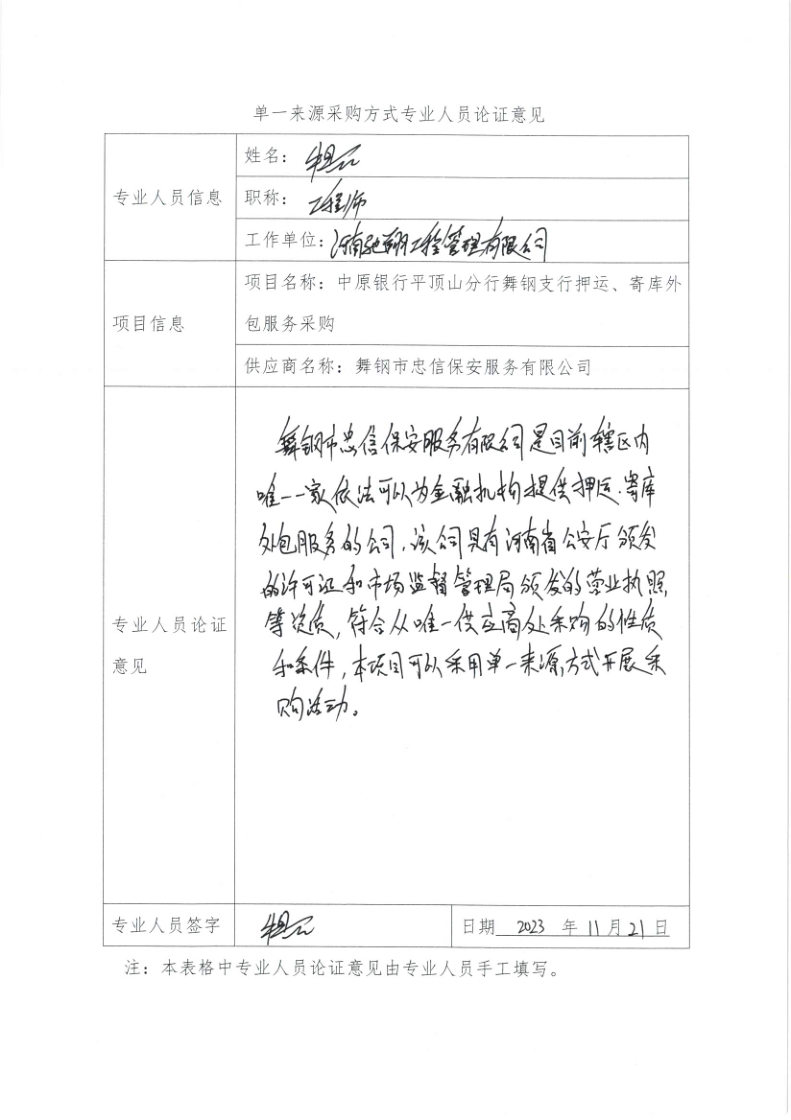 单一来源采购方式专业人员论证意见
专业人员信息
姓名：
职称：工程师
工作单位：河南驰翔工程管理有限公司
项目信息
项目名称：中原银行平顶山分行舞钢支行押运、寄库外
包服务采购
供应商名称：舞钢市忠信保安服务有限公司
专业人员论证
意见
舞钢市忠信保安服务有限公司是目前辖区内
唯一一家依法可以为金融机构提供押运、寄库
外包服务的公司，该公司具有河南省公安厅颁发
的许可证和市场监督管理局颁发的营业执照
等资质，符合从唯一供应商处采购的性质
和条件，本项目可以采用单一来源方式开展采
购活动。
专业人员签字
日期 2023 年 11 月 21 日
注：本表格中专业人员论证意见由专业人员手工填写。